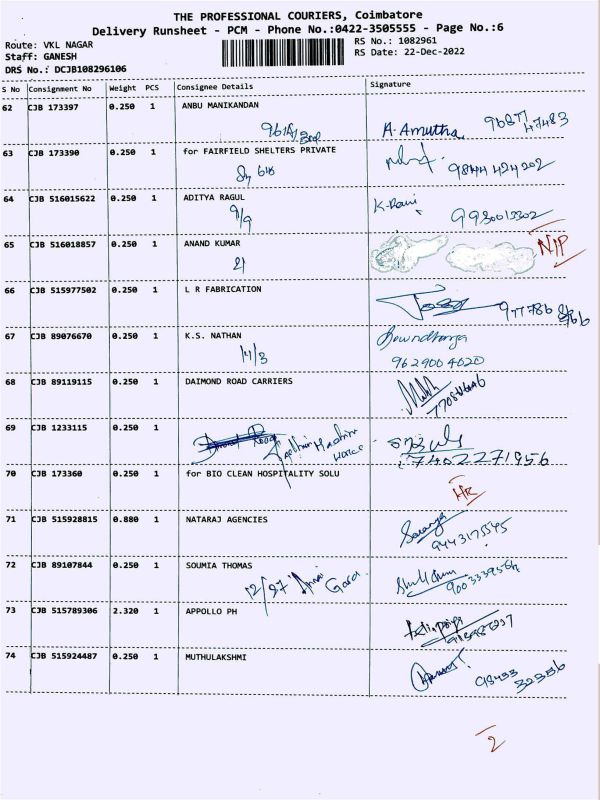 THE PROFESSIONAL COURIERS, Coimbatore
Delivery Runsheet - PCM - Phone No.:0422-3505555 - Page No.:6
Route: VKL NAGAR
RS No.: 1082961
Staff: GANESH
RS Date: 22-Dec-2022
DRS No.: DCJB108296106
S No Consignment No Weight PCS Consignee Details Signature
62 CJB 173397 0.250 1 ANBU MANIKANDAN
A. Amutha
63 CJB 173390 0.250 1 for FAIRFIELD SHELTERS PRIVATE
9844 424202
64 CJB 516015622 0.250 1 ADITYA RAGUL
9/9 K. Rani
65 CJB 516018857 0.250 1 ANAND KUMAR
21 N/P
66 CJB 515977502 0.250 1 L R FABRICATION
67 CJB 89076670 0.250 1 K.S. NATHAN
9629004020
68 CJB 89119115 0.250 1 DAIMOND ROAD CARRIERS
69 CJB 1233115 0.250 1
7402271956
70 CJB 173360 0.250 1 for BIO CLEAN HOSPITALITY SOLU
71 CJB 515928815 0.880 1 NATARAJ AGENCIES
72 CJB 89107844 0.250 1 SOUMIA THOMAS
73 CJB 515789306 2.320 1 APPOLLO PH
74 CJB 515924487 0.250 1 MUTHULAKSHMI
2